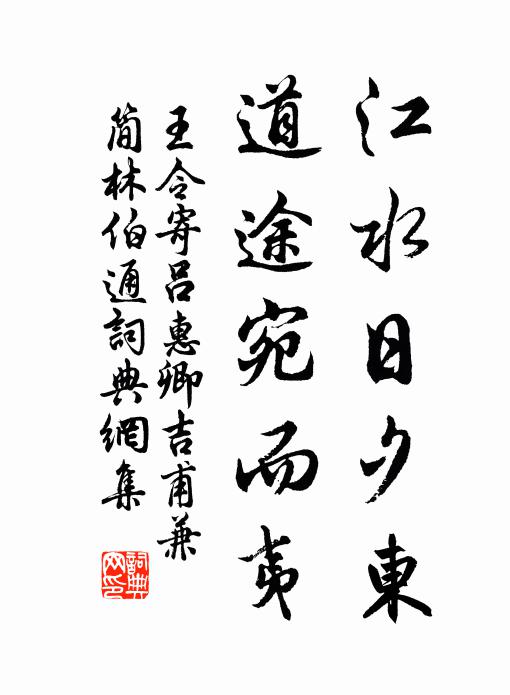 江水日夕東
道途宛而夷
王令寄呂惠卿吉甫兼
簡林伯通詞典網集
詞典網印